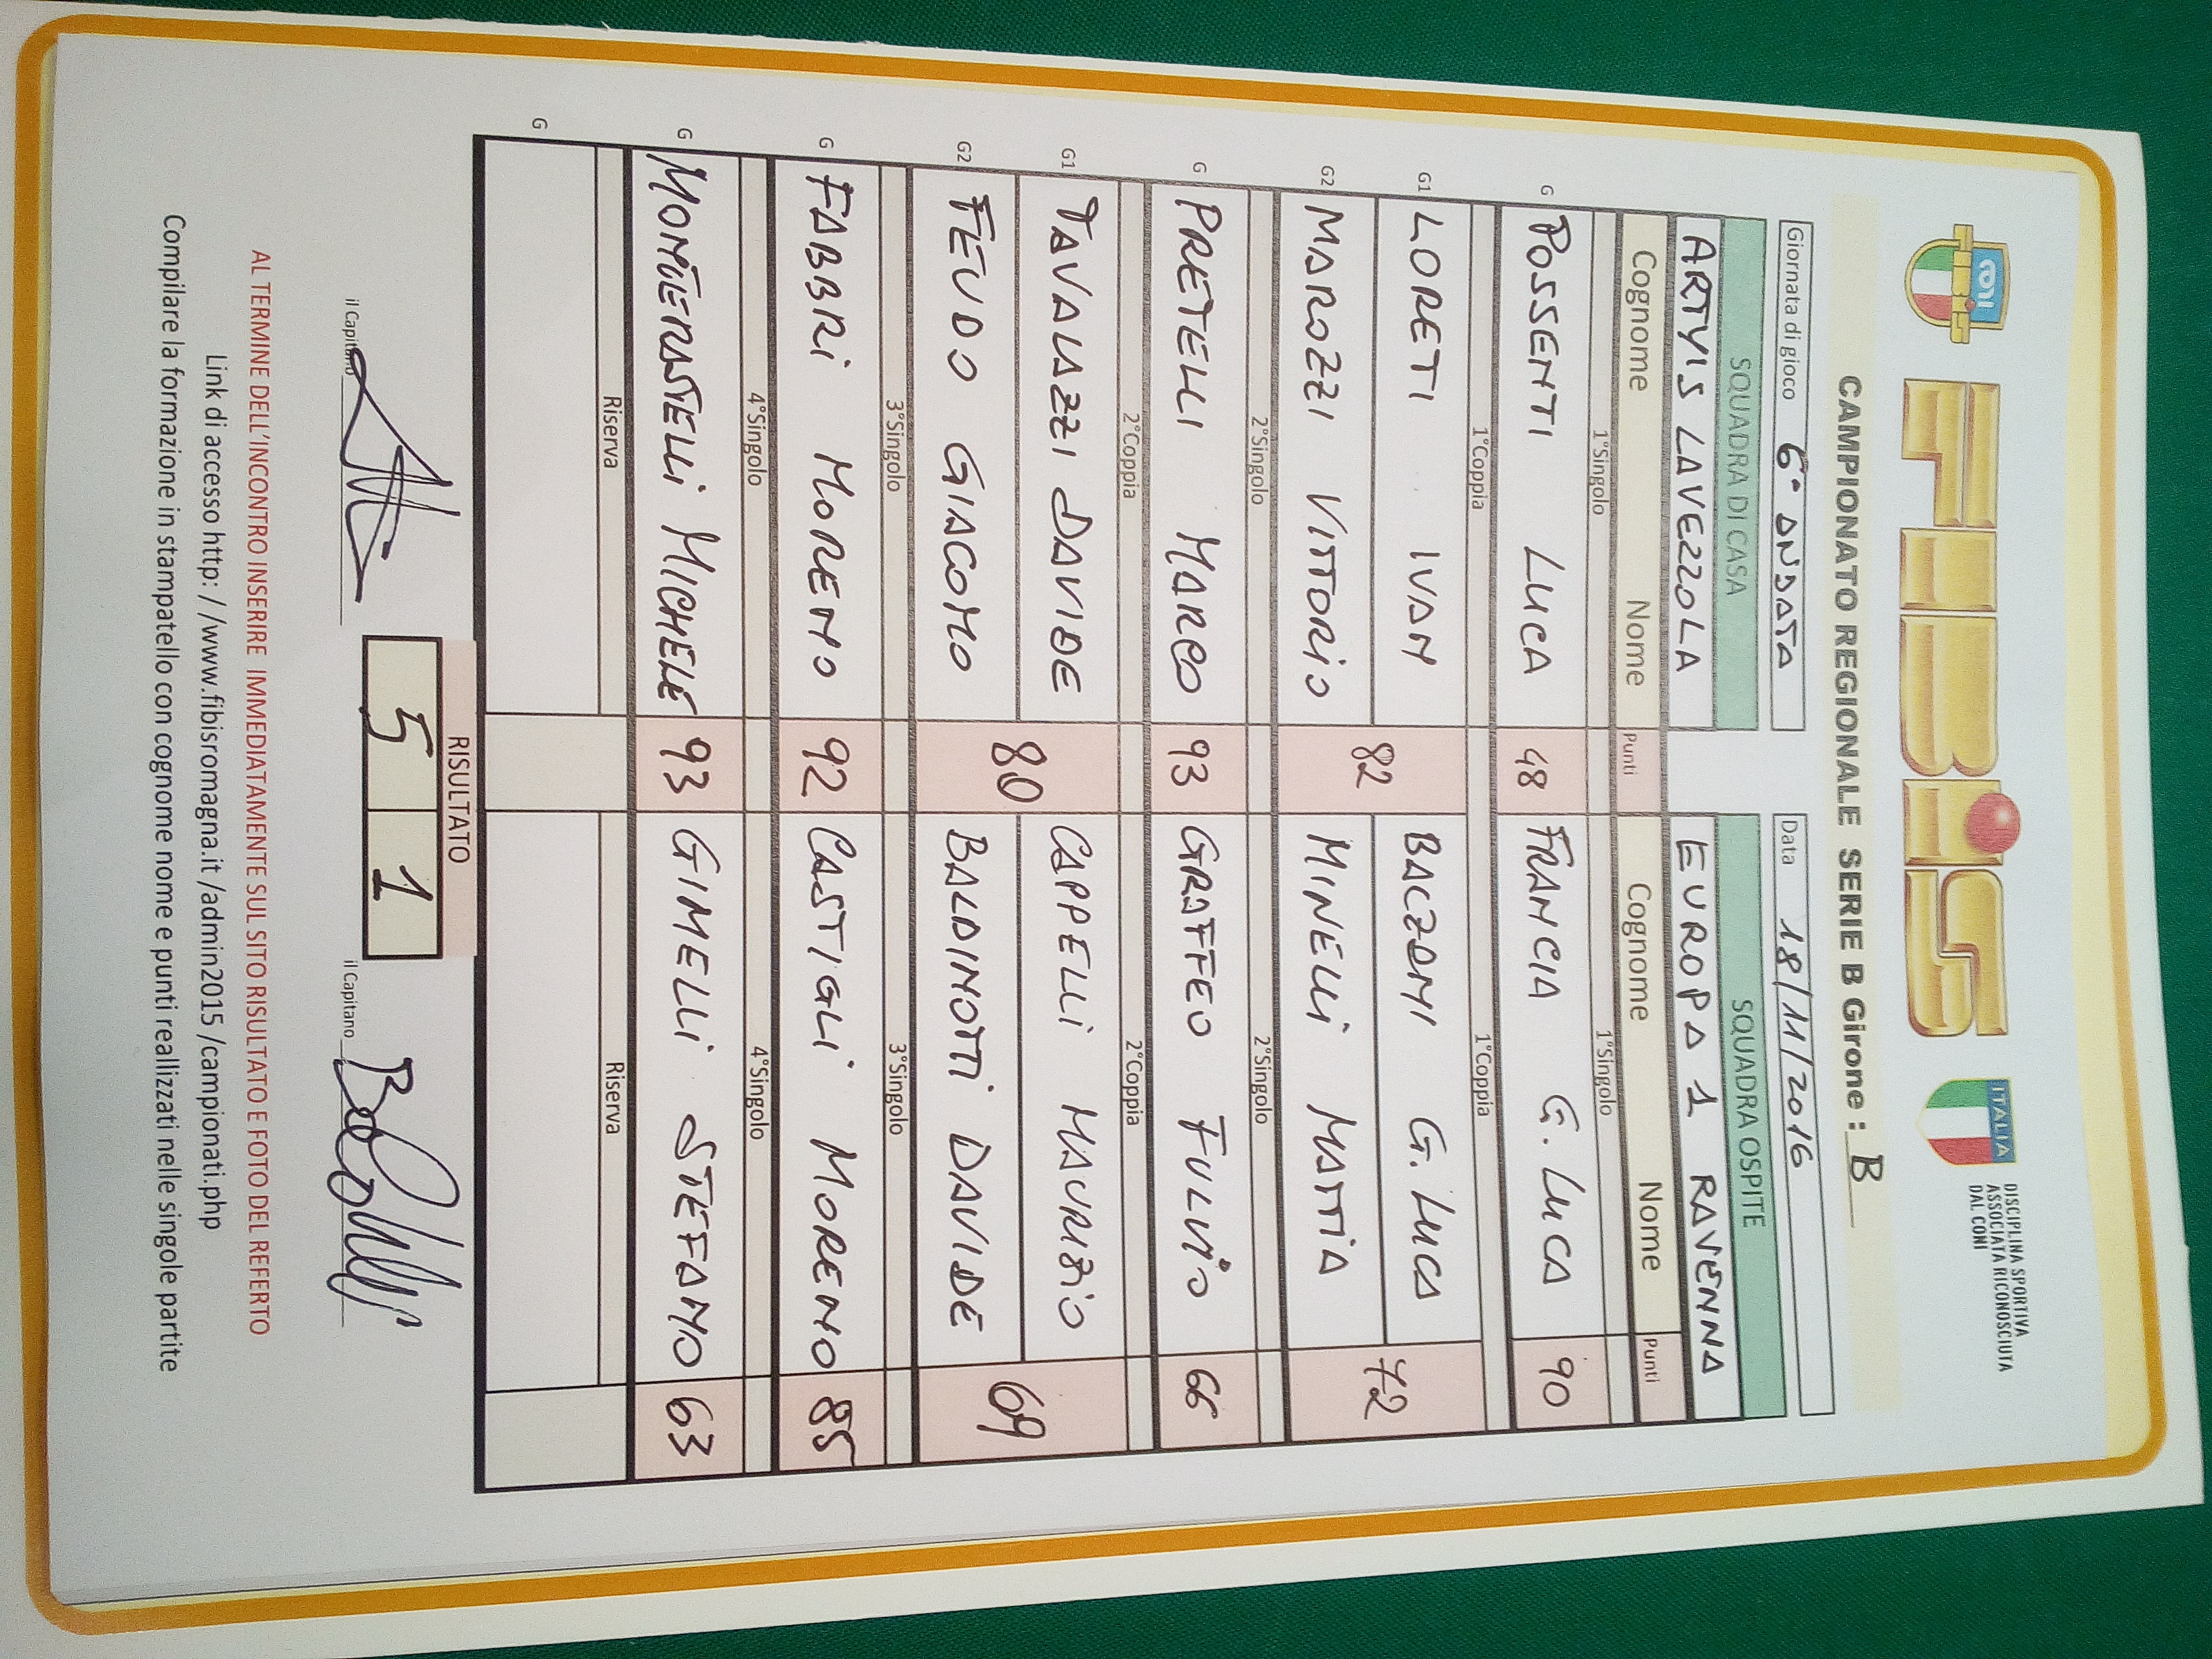 CONI
FIBiS
ITALIA
DISCIPLINA SPORTIVA
ASSOCIATA RICONOSCIUTA
DAL CONI
CAMPIONATO REGIONALE SERIE B Girone : B
Giornata di gioco 6° ANDATA Data 18/11/2016
SQUADRA DI CASA SQUADRA OSPITE
ARTYIS LAVEZZOLA EUROPA 1 RAVENNA
Cognome Nome Punti Cognome Nome Punti
1°Singolo 1°Singolo
G POSSENTI LUCA 48 FRANCIA G. LUCA 90
1°Coppia 1°Coppia
G1 LORETI IVAN 82 BALZANI G. LUCA 72
G2 MAROZZI VITTORIO MINELLI MATTIA
2°Singolo 2°Singolo
G PRETELLI MARCO 93 GRAFFEO FULVIO 66
2°Coppia 2°Coppia
G1 TAVALAZZI DAVIDE 80 CAPPELLI MAURIZIO 69
G2 FEUDO GIACOMO BALDINOTTI DAVIDE
3°Singolo 3°Singolo
G FABBRI MORENO 92 CASTIGLI MORENO 85
4°Singolo 4°Singolo
G MONTERASTELLI MICHELE 93 GIMELLI STEFANO 63
Riserva Riserva
G
RISULTATO
il Capitano 5 1 il Capitano
AL TERMINE DELL'INCONTRO INSERIRE IMMEDIATAMENTE SUL SITO RISULTATO E FOTO DEL REFERTO
Link di accesso http: / /www.fibisromagna.it /admin2015 /campionati.php
Compilare la formazione in stampatello con cognome nome e punti reallizzati nelle singole partite